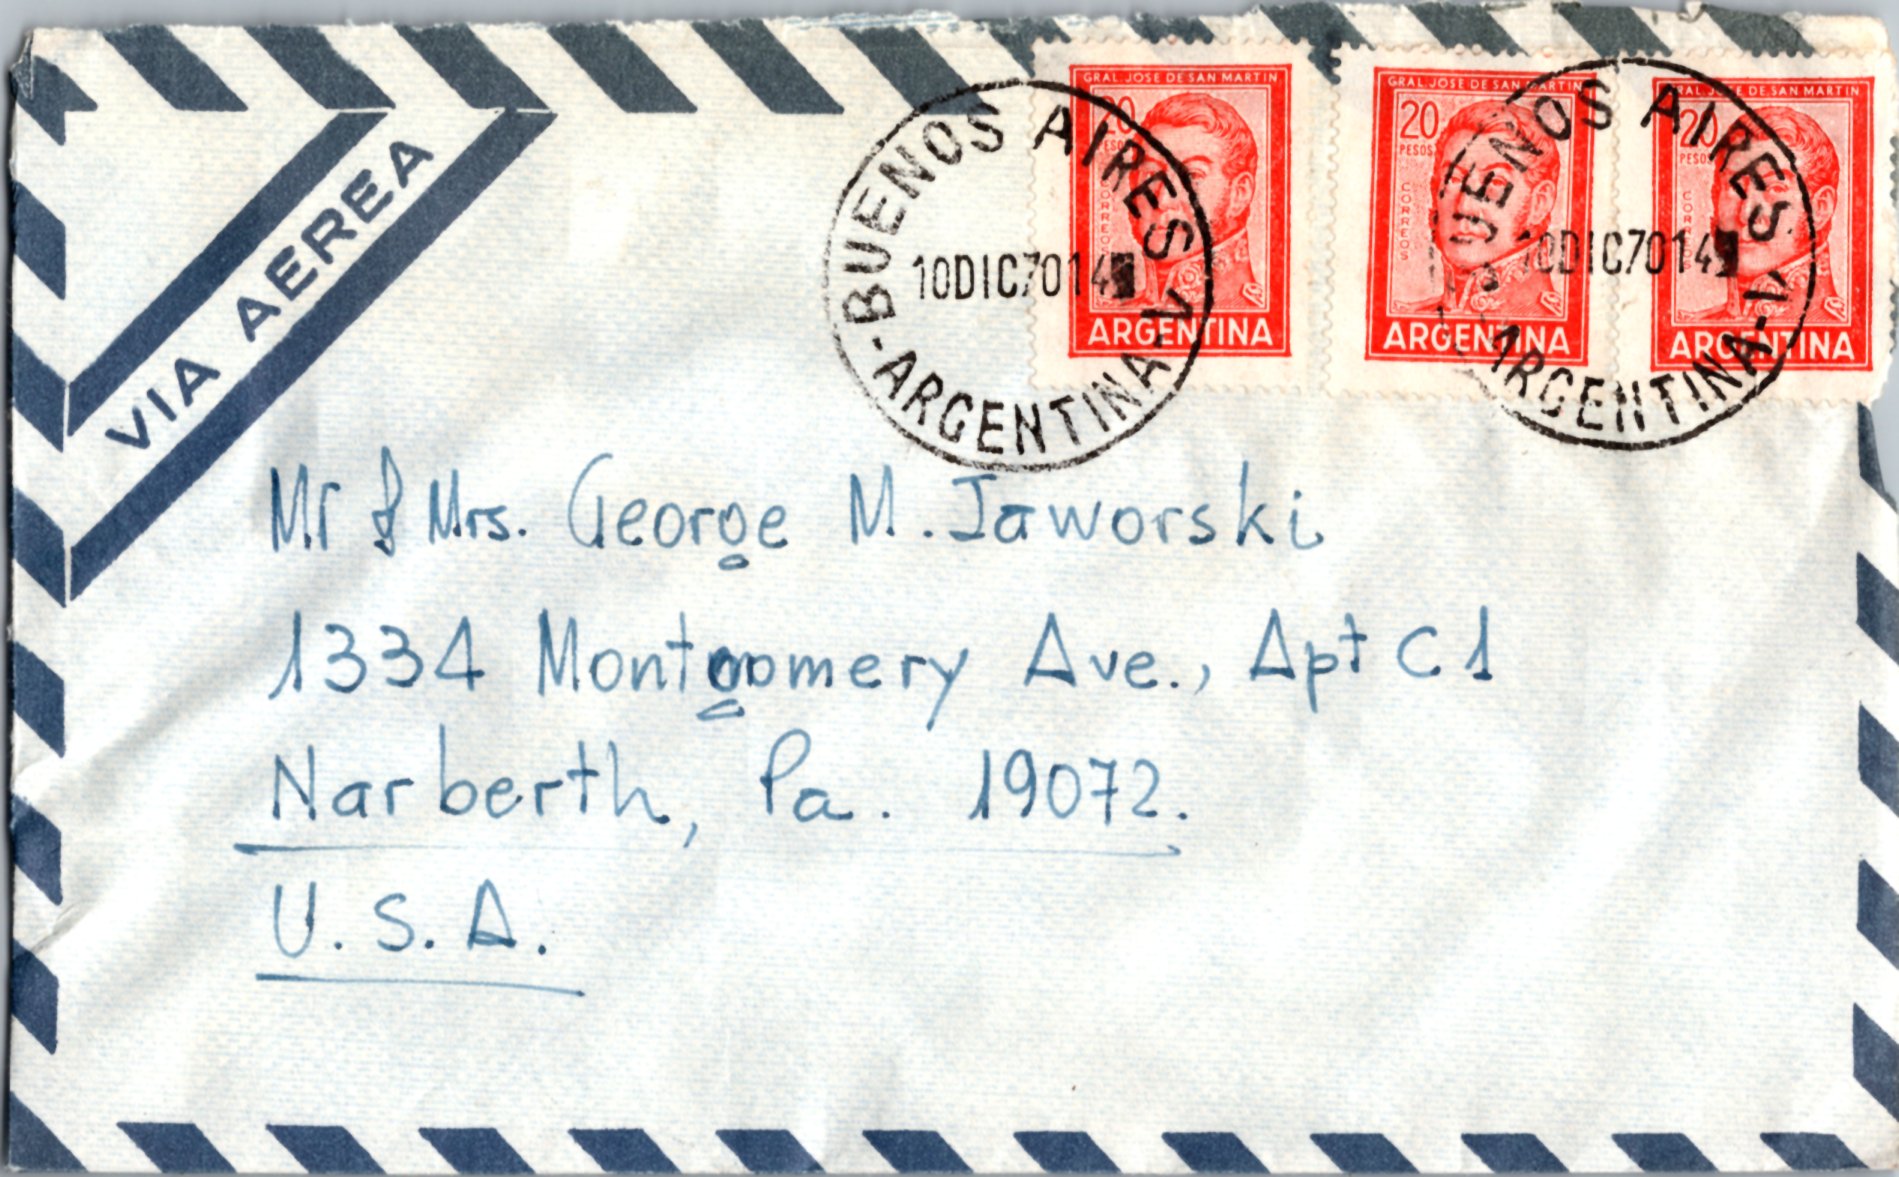 VIA AEREA
GRAL. JOSE DE SAN MARTIN
20
PESOS
CORREOS
ARGENTINA
GRAL. JOSE DE SAN MARTIN
20
PESOS
CORREOS
ARGENTINA
GRAL. JOSE DE SAN MARTIN
20
PESOS
CORREOS
ARGENTINA
BUENOS AIRES-1
10DIC7014
-ARGENTINA-
BUENOS AIRES-1
10DIC7014
ARGENTINA-
Mr & Mrs. George M. Jaworski
1334 Montgomery Ave., Apt C1
Narberth, Pa. 19072.
U.S.A.